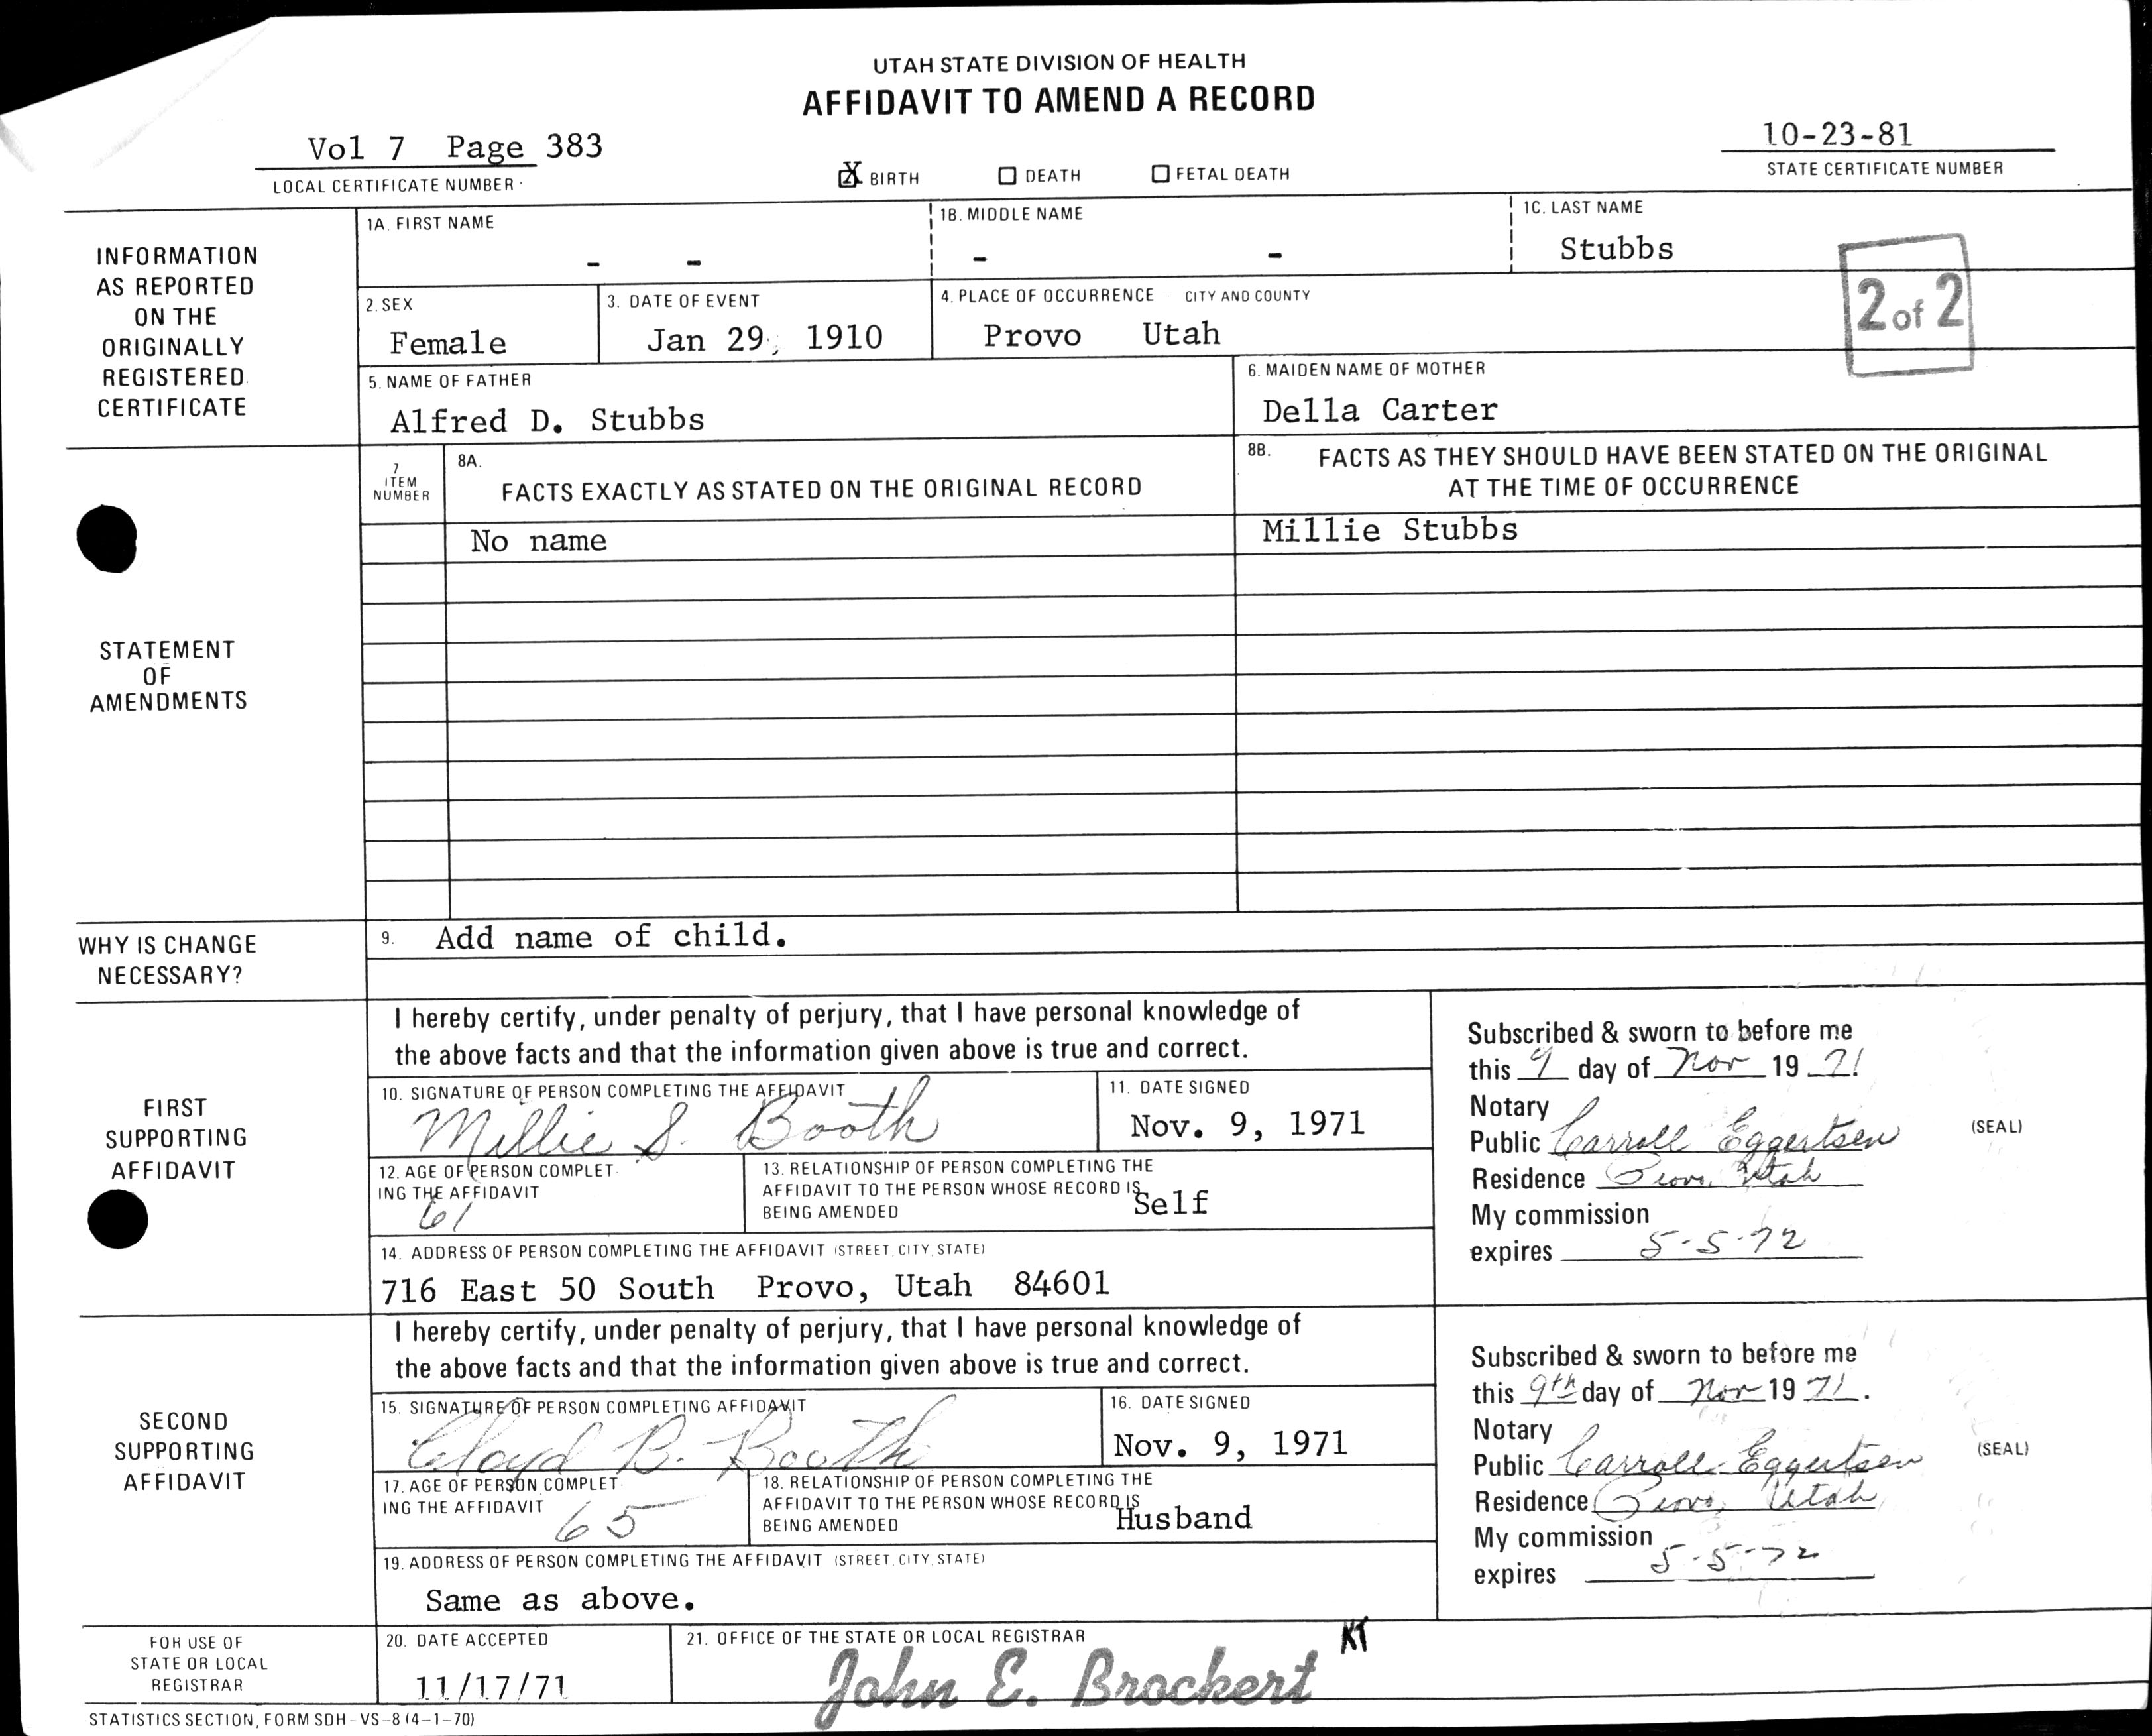 UTAH STATE DIVISION OF HEALTH
AFFIDAVIT TO AMEND A RECORD
Vol 7 Page 383
LOCAL CERTIFICATE NUMBER
X BIRTH DEATH FETAL DEATH
10-23-81
STATE CERTIFICATE NUMBER
INFORMATION
AS REPORTED
ON THE
ORIGINALLY
REGISTERED
CERTIFICATE
1A. FIRST NAME
- -
1B. MIDDLE NAME
- -
1C. LAST NAME
Stubbs
2 of 2
2. SEX
Female
3. DATE OF EVENT
Jan 29, 1910
4. PLACE OF OCCURRENCE CITY AND COUNTY
Provo Utah
5. NAME OF FATHER
Alfred D. Stubbs
6. MAIDEN NAME OF MOTHER
Della Carter
STATEMENT
OF
AMENDMENTS
7
ITEM
NUMBER
8A.
FACTS EXACTLY AS STATED ON THE ORIGINAL RECORD
8B. FACTS AS THEY SHOULD HAVE BEEN STATED ON THE ORIGINAL
AT THE TIME OF OCCURRENCE
No name
Millie Stubbs
WHY IS CHANGE
NECESSARY?
9. Add name of child.
FIRST
SUPPORTING
AFFIDAVIT
I hereby certify, under penalty of perjury, that I have personal knowledge of
the above facts and that the information given above is true and correct.
10. SIGNATURE OF PERSON COMPLETING THE AFFIDAVIT
Millie S. Booth
11. DATE SIGNED
Nov. 9, 1971
12. AGE OF PERSON COMPLET-
ING THE AFFIDAVIT
61
13. RELATIONSHIP OF PERSON COMPLETING THE
AFFIDAVIT TO THE PERSON WHOSE RECORD IS
BEING AMENDED
Self
14. ADDRESS OF PERSON COMPLETING THE AFFIDAVIT (STREET, CITY, STATE)
716 East 50 South Provo, Utah 84601
Subscribed & sworn to before me
this 9 day of Nov 19 71
Notary
Public Carroll Eggertsen
(SEAL)
Residence Provo, Utah
My commission
expires 5-5-72
SECOND
SUPPORTING
AFFIDAVIT
I hereby certify, under penalty of perjury, that I have personal knowledge of
the above facts and that the information given above is true and correct.
15. SIGNATURE OF PERSON COMPLETING AFFIDAVIT
Cloyd B. Booth
16. DATE SIGNED
Nov. 9, 1971
17. AGE OF PERSON COMPLET-
ING THE AFFIDAVIT
65
18. RELATIONSHIP OF PERSON COMPLETING THE
AFFIDAVIT TO THE PERSON WHOSE RECORD IS
BEING AMENDED
Husband
19. ADDRESS OF PERSON COMPLETING THE AFFIDAVIT (STREET, CITY, STATE)
Same as above.
Subscribed & sworn to before me
this 9th day of Nov 19 71.
Notary
Public Carroll Eggertsen
(SEAL)
Residence Provo, Utah
My commission
expires 5-5-72
FOR USE OF
STATE OR LOCAL
REGISTRAR
20. DATE ACCEPTED
11/17/71
21. OFFICE OF THE STATE OR LOCAL REGISTRAR
John E. Brockert
KT
STATISTICS SECTION, FORM SDH-VS-8 (4-1-70)